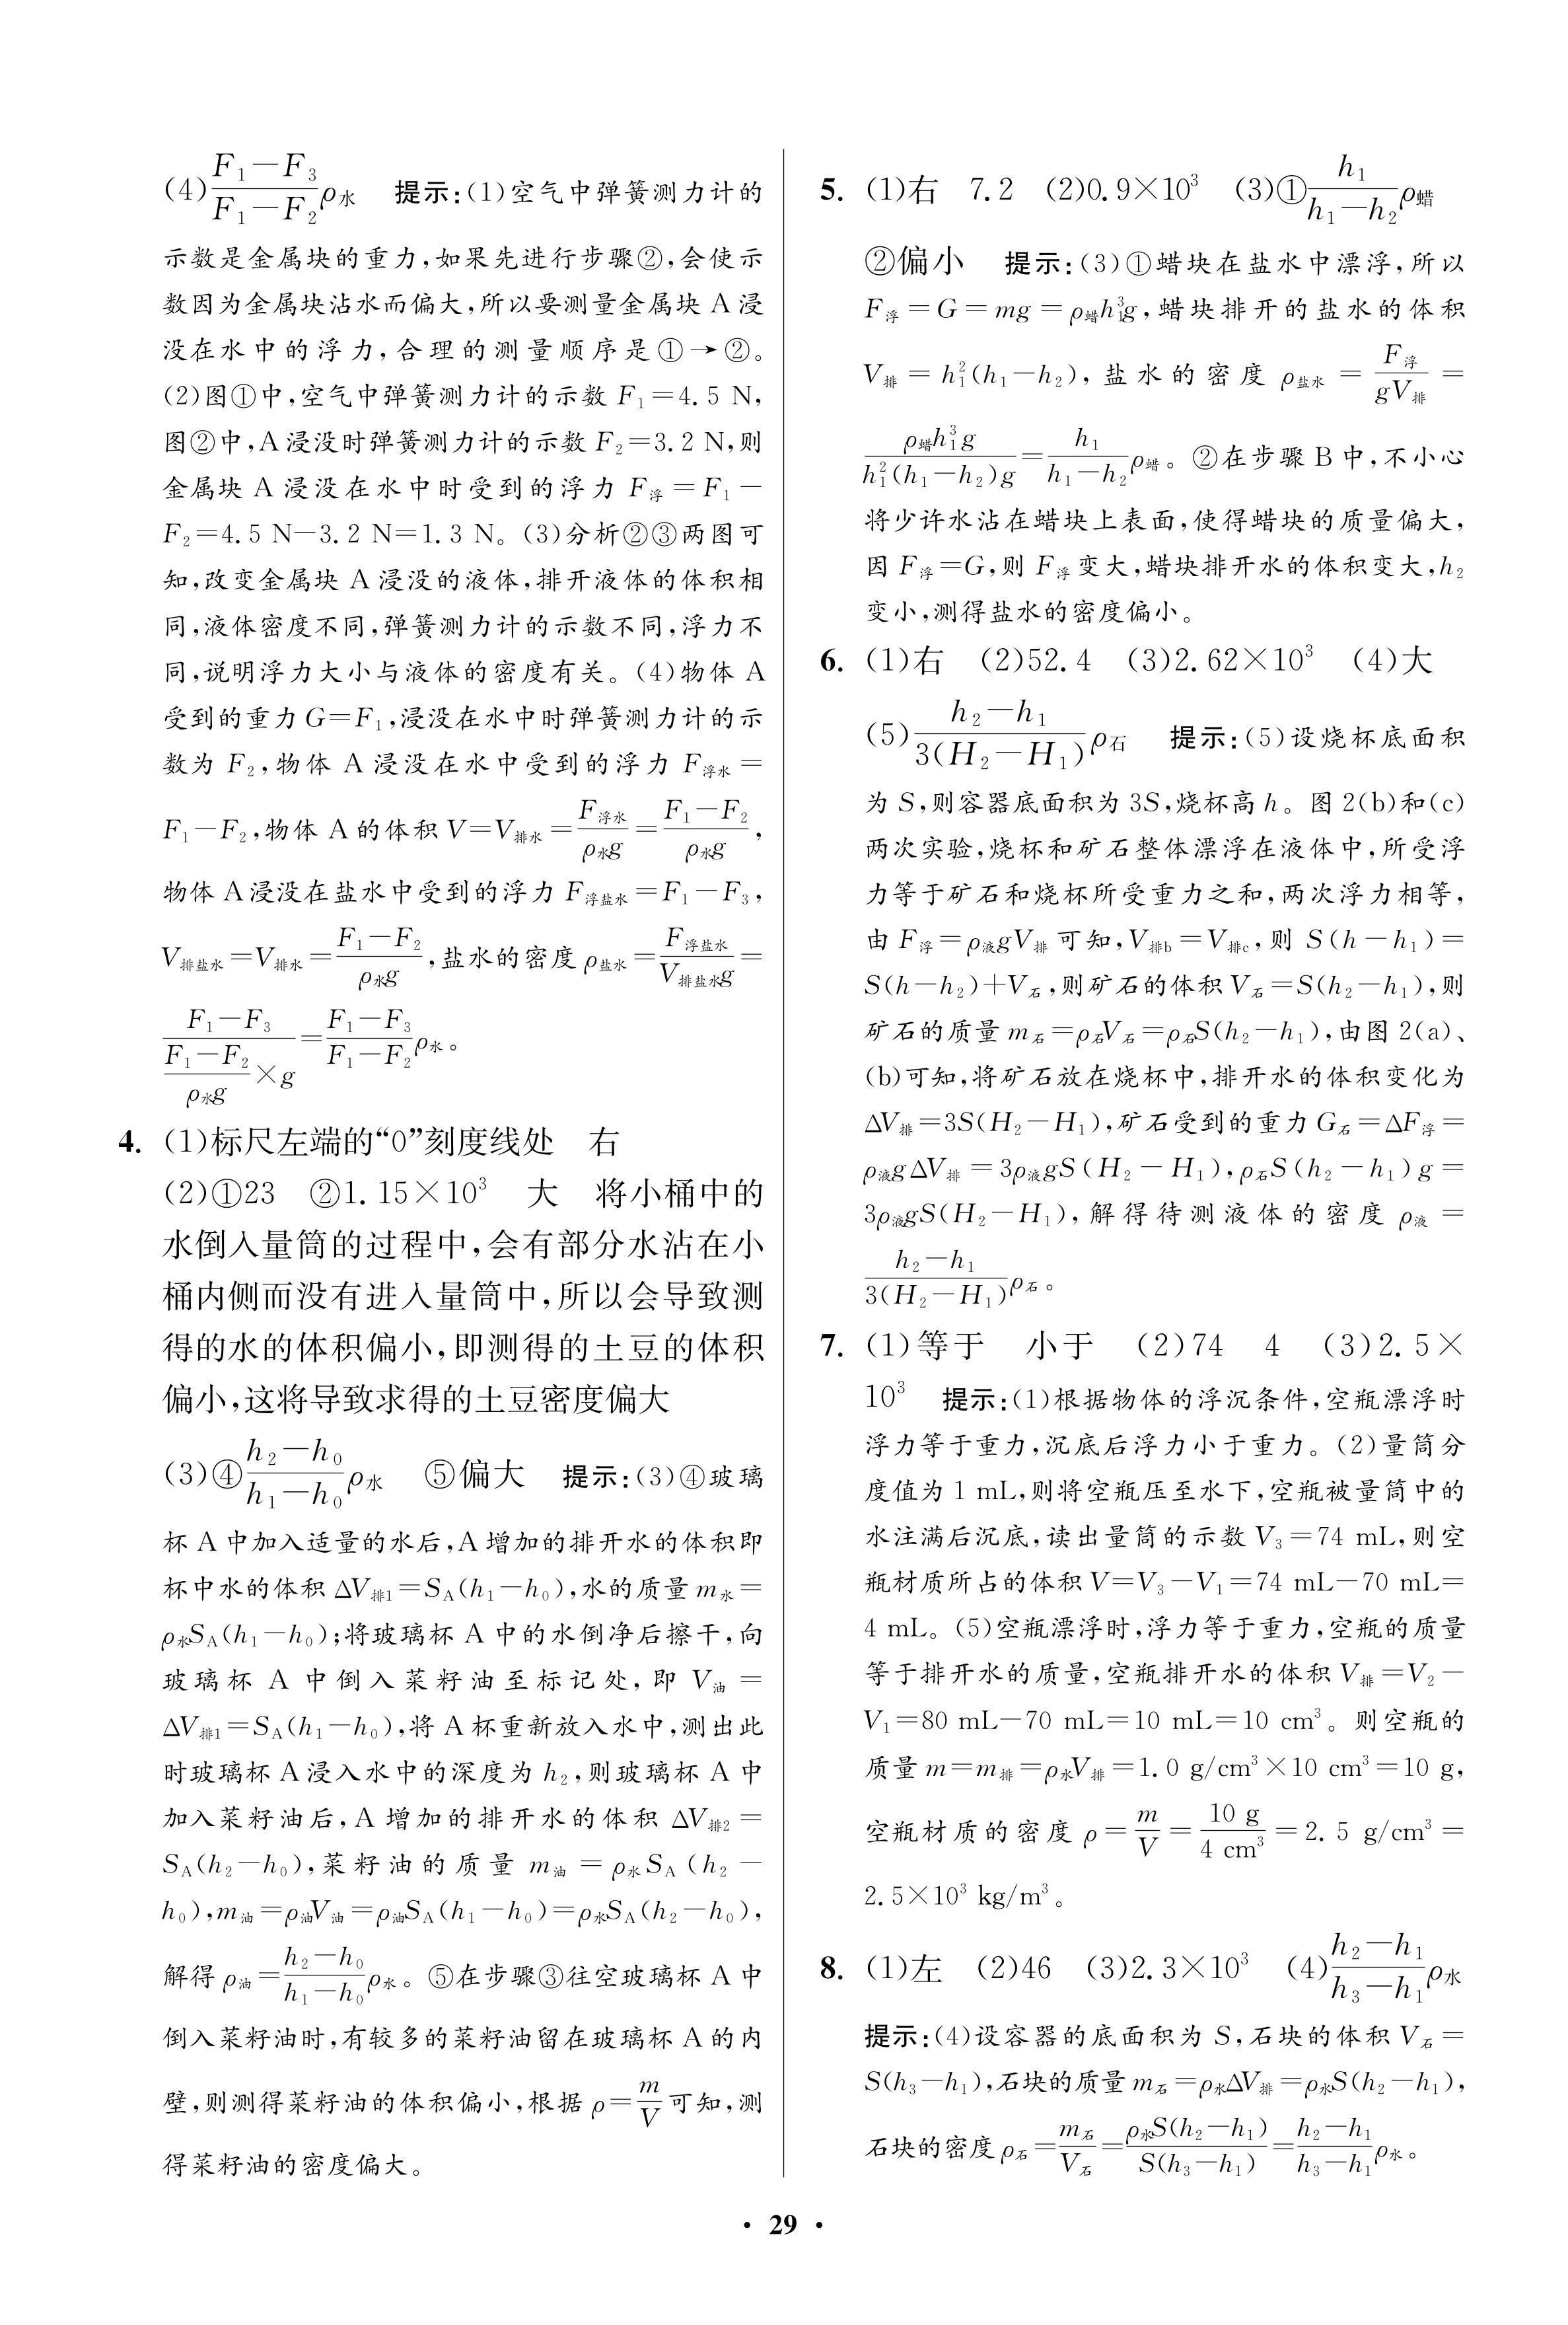 (4)\frac{F₁－F₃}{F₁－F₂}ρ水　提示:(1)空气中弹簧测力计的
示数是金属块的重力,如果先进行步骤②,会使示
数因为金属块沾水而偏大,所以要测量金属块 A 浸
没在水中的浮力,合理的测量顺序是①→②。
(2)图①中,空气中弹簧测力计的示数 F₁＝4.5 N,
图②中,A浸没时弹簧测力计的示数 F₂＝3.2 N,则
金属块 A 浸没在水中时受到的浮力 F浮＝F₁－
F₂＝4.5 N－3.2 N＝1.3 N。(3)分析②③两图可
知,改变金属块 A 浸没的液体,排开液体的体积相
同,液体密度不同,弹簧测力计的示数不同,浮力不
同,说明浮力大小与液体的密度有关。(4)物体 A
受到的重力 G＝F₁,浸没在水中时弹簧测力计的示
数为 F₂,物体 A 浸没在水中受到的浮力 F浮水＝
F₁－F₂,物体 A 的体积 V＝V排水＝\frac{F浮水}{ρ水g}＝\frac{F₁－F₂}{ρ水g},
物体A浸没在盐水中受到的浮力 F浮盐水＝F₁－F₃,
V排盐水＝V排水＝\frac{F₁－F₂}{ρ水g},盐水的密度 ρ盐水＝\frac{F浮盐水}{V排盐水g}＝
\frac{F₁－F₃}{\frac{F₁－F₂}{ρ水g}×g}＝\frac{F₁－F₃}{F₁－F₂}ρ水。
4. (1)标尺左端的“0”刻度线处　右
(2)①23　②1.15×10³　大　将小桶中的
水倒入量筒的过程中,会有部分水沾在小
桶内侧而没有进入量筒中,所以会导致测
得的水的体积偏小,即测得的土豆的体积
偏小,这将导致求得的土豆密度偏大
(3)④\frac{h₂－h₀}{h₁－h₀}ρ水　⑤偏大　提示:(3)④玻璃
杯 A 中加入适量的水后,A 增加的排开水的体积即
杯中水的体积 ΔV排1＝S_A(h₁－h₀),水的质量 m水＝
ρ水S_A(h₁－h₀);将玻璃杯 A 中的水倒净后擦干,向
玻璃杯 A 中倒入菜籽油至标记处,即 V油＝
ΔV排1＝S_A(h₁－h₀),将 A 杯重新放入水中,测出此
时玻璃杯 A 浸入水中的深度为 h₂,则玻璃杯 A 中
加入菜籽油后,A 增加的排开水的体积 ΔV排2＝
S_A(h₂－h₀),菜籽油的质量 m油＝ρ水S_A(h₂－
h₀),m油＝ρ油V油＝ρ油S_A(h₁－h₀)＝ρ水S_A(h₂－h₀),
解得 ρ油＝\frac{h₂－h₀}{h₁－h₀}ρ水。⑤在步骤③往空玻璃杯 A 中
倒入菜籽油时,有较多的菜籽油留在玻璃杯 A 的内
壁,则测得菜籽油的体积偏小,根据 ρ＝\frac{m}{V}可知,测
得菜籽油的密度偏大。
5. (1)右　7.2　(2)0.9×10³　(3)①\frac{h₁}{h₁－h₂}ρ蜡
②偏小　提示:(3)①蜡块在盐水中漂浮,所以
F浮＝G＝mg＝ρ蜡h₁³g,蜡块排开的盐水的体积
V排＝h₁²(h₁－h₂),盐水的密度 ρ盐水＝\frac{F浮}{gV排}＝
\frac{ρ蜡h₁³g}{h₁²(h₁－h₂)g}＝\frac{h₁}{h₁－h₂}ρ蜡。②在步骤 B 中,不小心
将少许水沾在蜡块上表面,使得蜡块的质量偏大,
因 F浮＝G,则 F浮变大,蜡块排开水的体积变大,h₂
变小,测得盐水的密度偏小。
6. (1)右　(2)52.4　(3)2.62×10³　(4)大
(5)\frac{h₂－h₁}{3(H₂－H₁)}ρ石　提示:(5)设烧杯底面积
为 S,则容器底面积为 3S,烧杯高 h。图 2(b)和(c)
两次实验,烧杯和矿石整体漂浮在液体中,所受浮
力等于矿石和烧杯所受重力之和,两次浮力相等,
由 F浮＝ρ液gV排可知,V排b＝V排c,则 S(h－h₁)＝
S(h－h₂)＋V石,则矿石的体积 V石＝S(h₂－h₁),则
矿石的质量 m石＝ρ石V石＝ρ石S(h₂－h₁),由图 2(a)、
(b)可知,将矿石放在烧杯中,排开水的体积变化为
ΔV排＝3S(H₂－H₁),矿石受到的重力 G石＝ΔF浮＝
ρ液gΔV排＝3ρ液gS(H₂－H₁),ρ石S(h₂－h₁)g＝
3ρ液gS(H₂－H₁),解得待测液体的密度 ρ液＝
\frac{h₂－h₁}{3(H₂－H₁)}ρ石。
7. (1)等于　小于　(2)74　4　(3)2.5×
10³　提示:(1)根据物体的浮沉条件,空瓶漂浮时
浮力等于重力,沉底后浮力小于重力。(2)量筒分
度值为 1 mL,则将空瓶压至水下,空瓶被量筒中的
水注满后沉底,读出量筒的示数 V₃＝74 mL,则空
瓶材质所占的体积 V＝V₃－V₁＝74 mL－70 mL＝
4 mL。(5)空瓶漂浮时,浮力等于重力,空瓶的质量
等于排开水的质量,空瓶排开水的体积 V排＝V₂－
V₁＝80 mL－70 mL＝10 mL＝10 cm³。则空瓶的
质量 m＝m排＝ρ水V排＝1.0 g/cm³×10 cm³＝10 g,
空瓶材质的密度 ρ＝\frac{m}{V}＝\frac{10 g}{4 cm³}＝2.5 g/cm³＝
2.5×10³ kg/m³。
8. (1)左　(2)46　(3)2.3×10³　(4)\frac{h₂－h₁}{h₃－h₁}ρ水
提示:(4)设容器的底面积为 S,石块的体积 V石＝
S(h₃－h₁),石块的质量 m石＝ρ水ΔV排＝ρ水S(h₂－h₁),
石块的密度 ρ石＝\frac{m石}{V石}＝\frac{ρ水S(h₂－h₁)}{S(h₃－h₁)}＝\frac{h₂－h₁}{h₃－h₁}ρ水。
· 29 ·